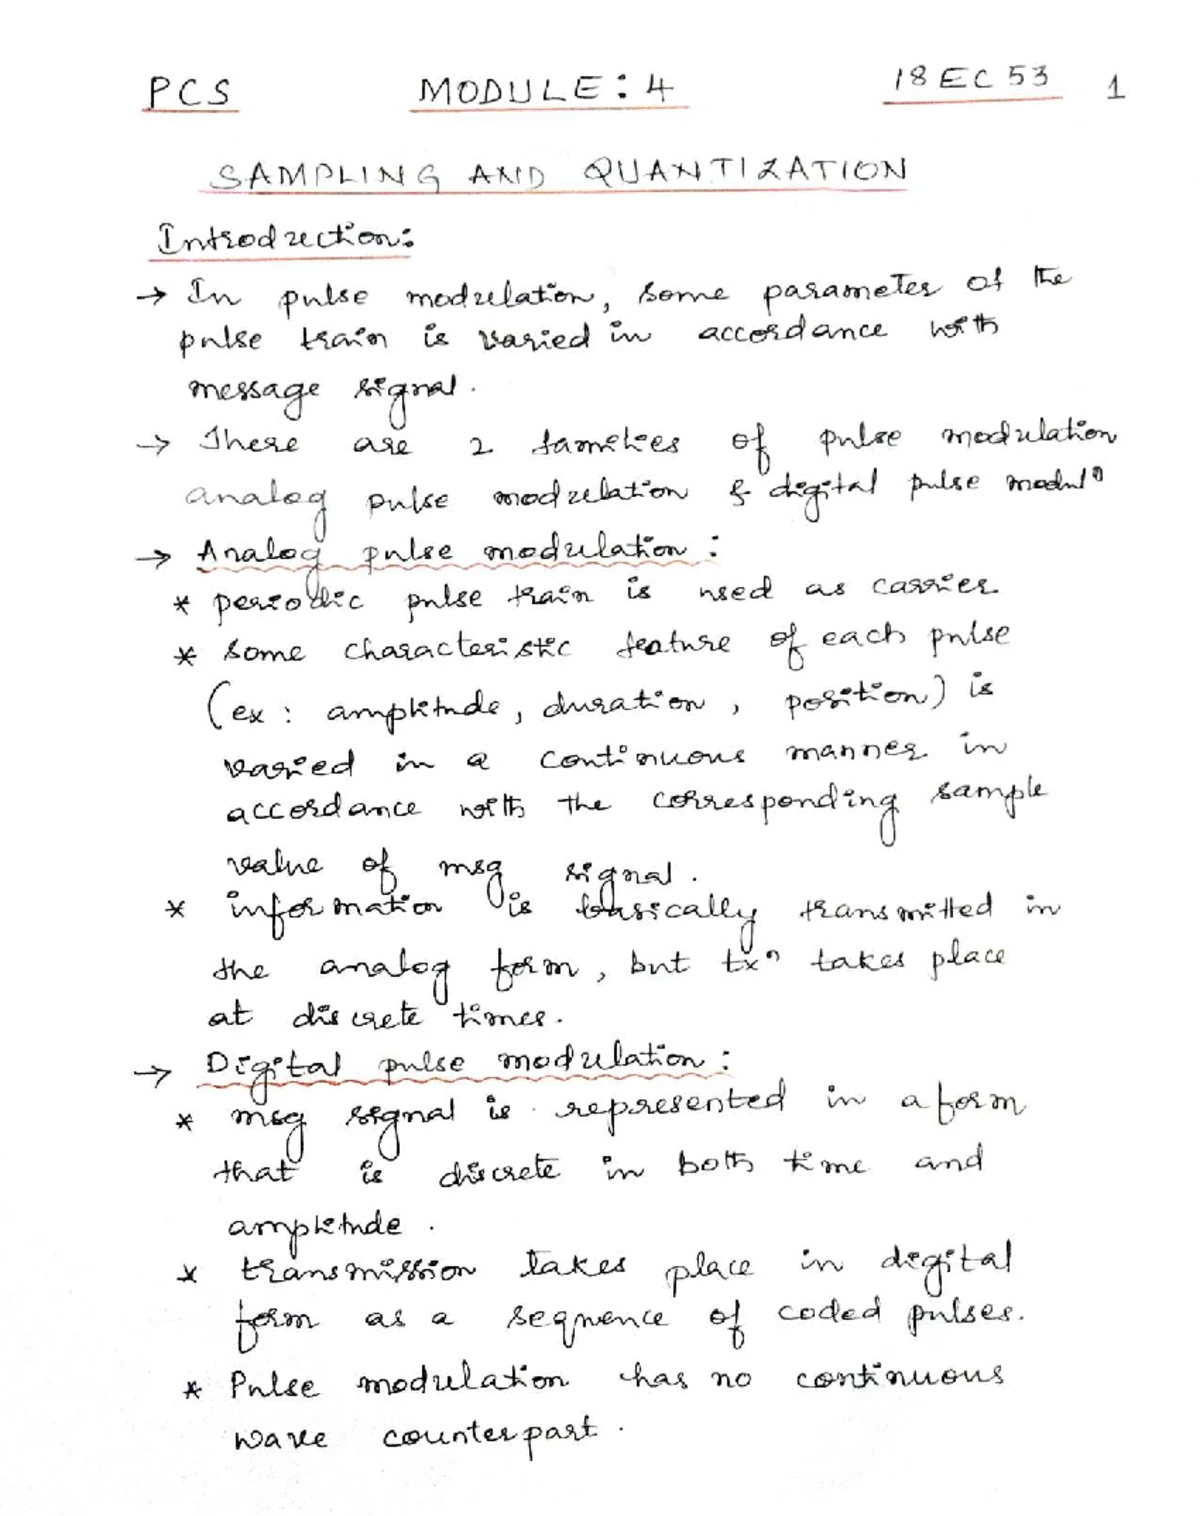 PCS MODULE: 4 18EC53 1
SAMPLING AND QUANTIZATION
Introduction:
→ In pulse modulation, some parameter of the
pulse train is varied in accordance with
message signal.
→ There are 2 families of pulse modulation
analog pulse modulation & digital pulse modulⁿ
→ Analog pulse modulation :
* periodic pulse train is used as carrier
* some characteristic feature of each pulse
(ex: amplitude, duration, position) is
varied in a continuous manner in
accordance with the corresponding sample
value of msg signal.
* information is basically transmitted in
the analog form, but txⁿ takes place
at discrete times.
→ Digital pulse modulation :
* msg signal is represented in a form
that is discrete in both time and
amplitude.
* transmission takes place in digital
form as a sequence of coded pulses.
* Pulse modulation has no continuous
wave counterpart.